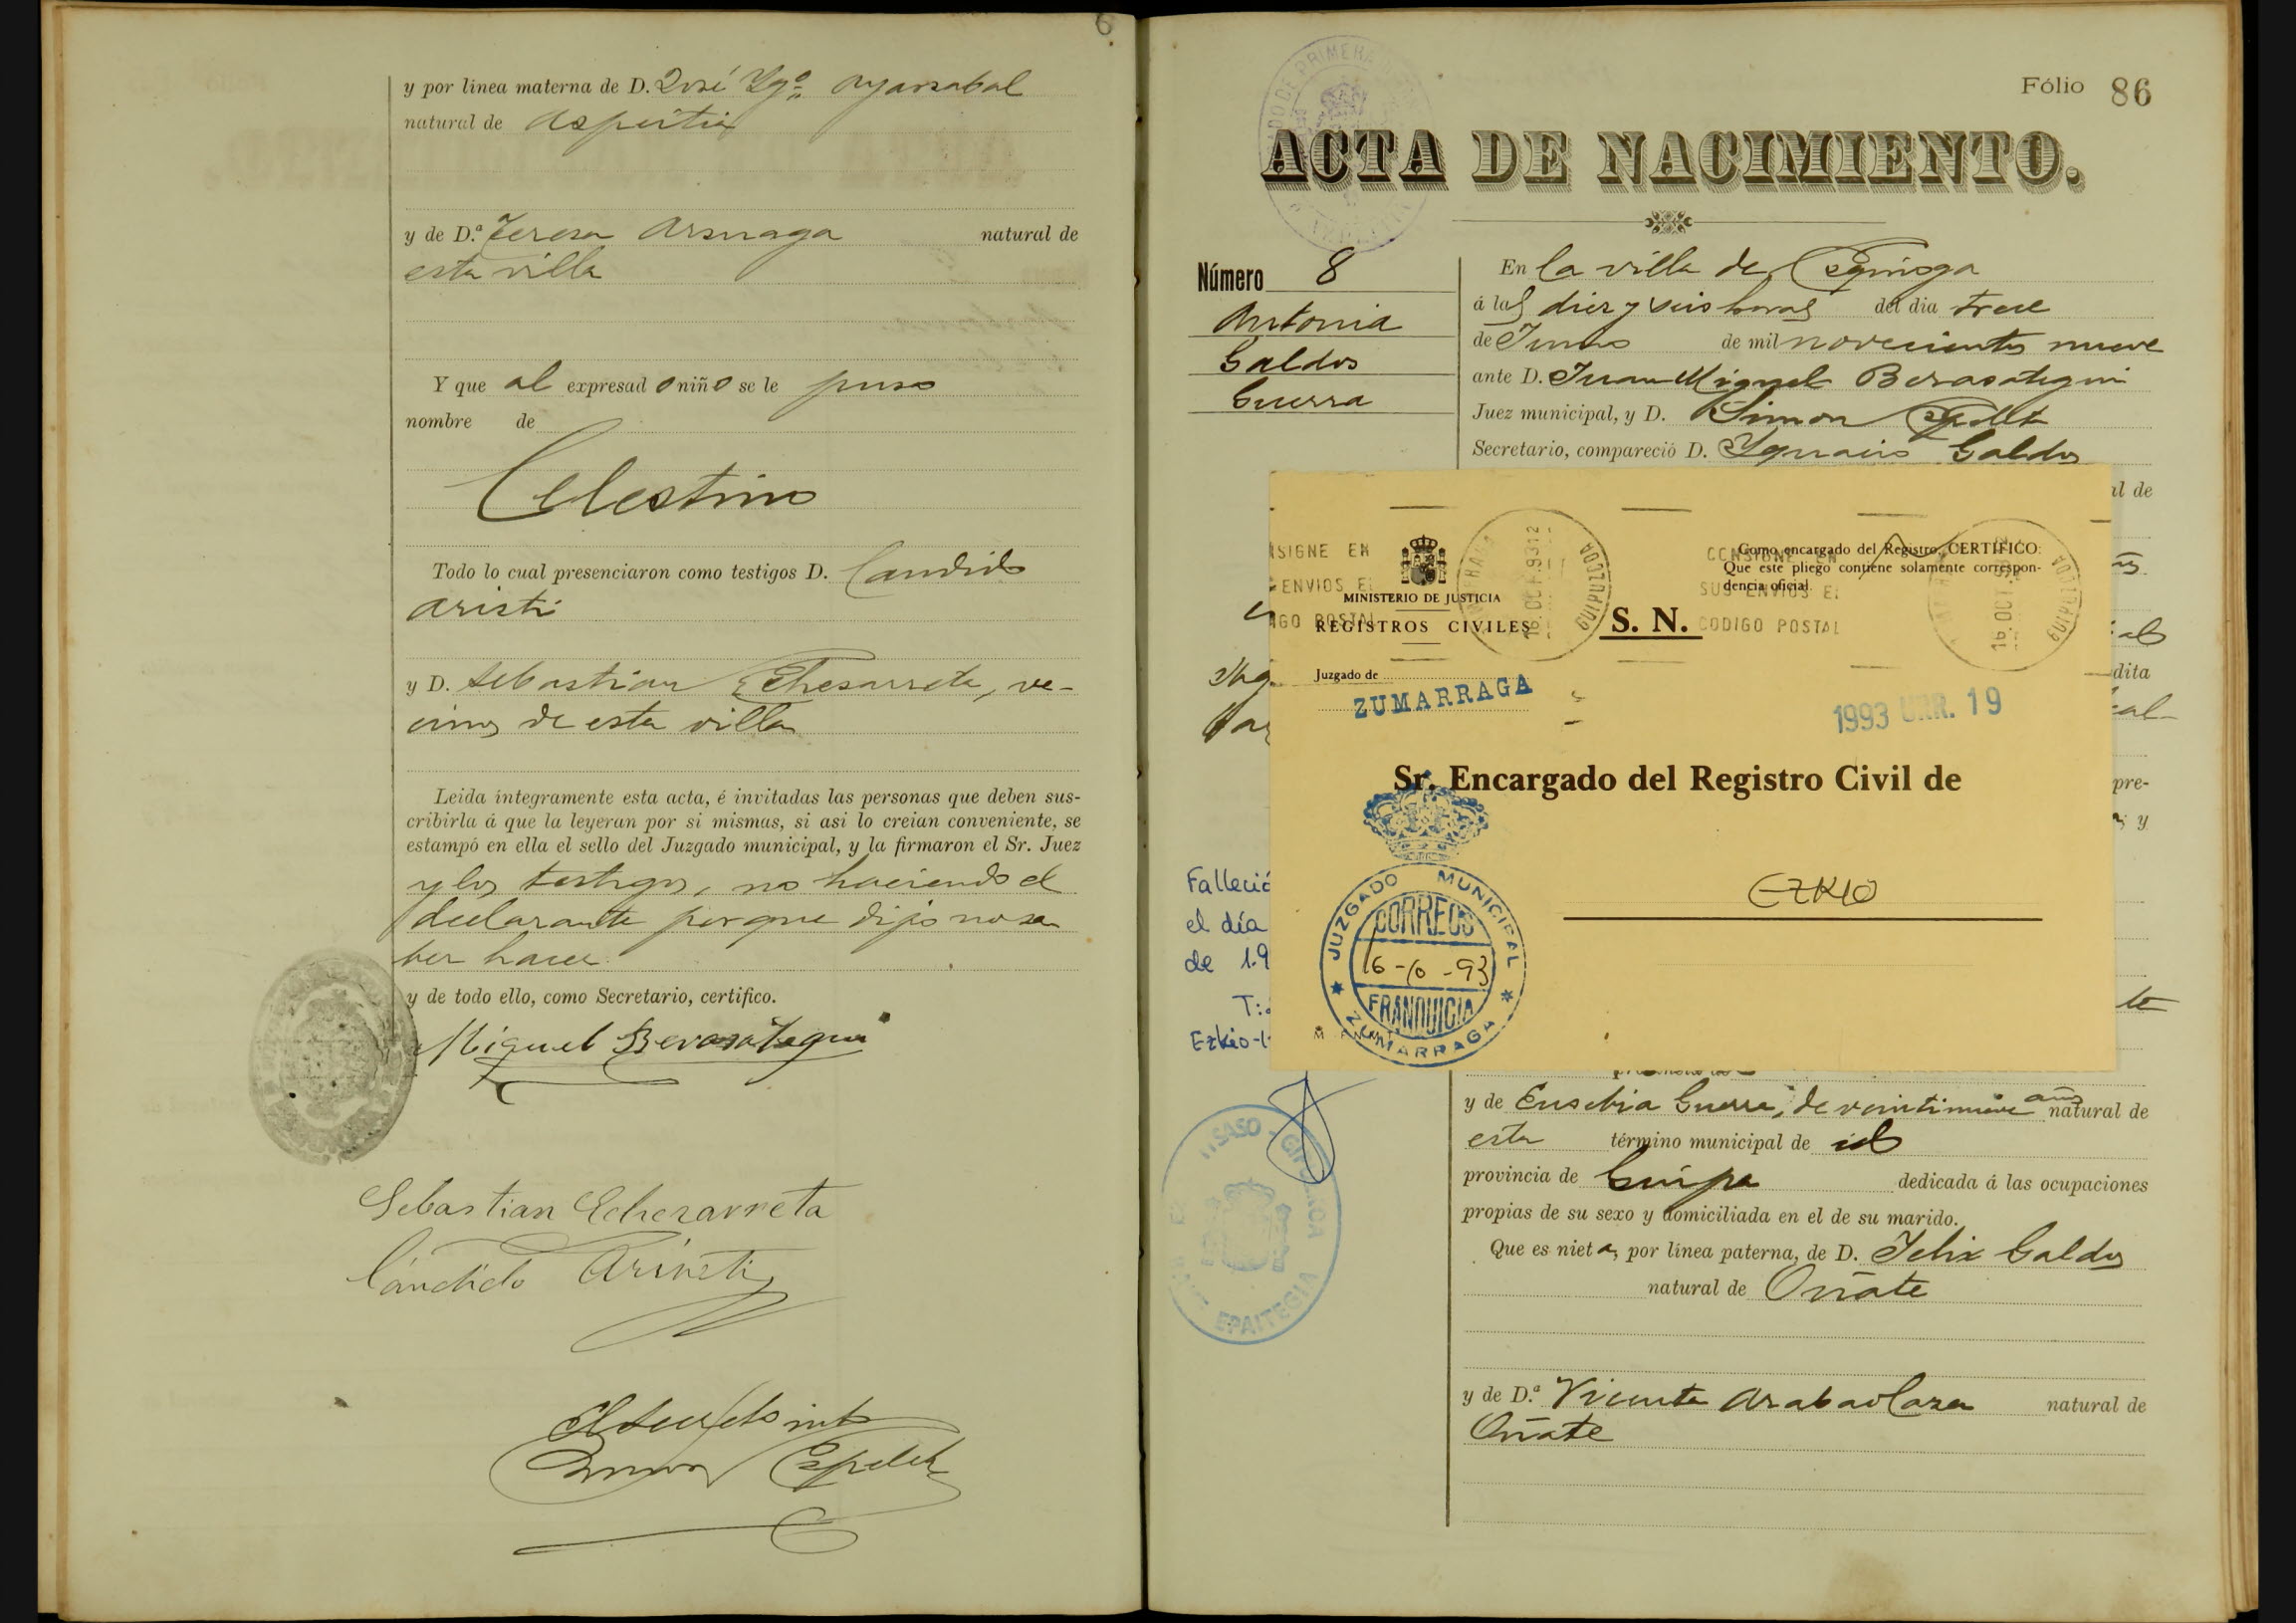 6
y por línea materna de D. José Ygº Oyarzabal
natural de Aspeitia
y de D.ª Teresa Arsuaga natural de
esta villa
Y que al expresado niño se le puso
nombre de
Celestino
Todo lo cual presenciaron como testigos D. Candido
Aristi
y D. Sebastian Echesarreta, ve-
cinos de esta villa
Leida íntegramente esta acta, é invitadas las personas que deben sus-
cribirla á que la leyeran por si mismas, si asi lo creian conveniente, se
estampó en ella el sello del Juzgado municipal, y la firmaron el Sr. Juez
y los testigos, no haciendo el
declarante porque dijo no sa
ber hacer
y de todo ello, como Secretario, certifico.
Miguel Berasategui
Sebastian Echezarreta
Cándido Aristi
Simon Espelet
Fólio 86
ACTA DE NACIMIENTO.
Número 8
Antonia
Galdos
Guerra
En la villa de Ezquioga
á las diez y seis horas del dia trece
de Junio de mil novecientos nueve
ante D. Juan Miguel Berasategui
Juez municipal, y D. Simon
Secretario, compareció D. Ygnacio Galdos
al de
dita
cal-
pre-
y
te
SIGNE EN
ENVIOS E
IGO POSTAL
MINISTERIO DE JUSTICIA
REGISTROS CIVILES
S. N.
16.OCT.93 12
GUIPUZCOA
CONSIGNE EN
SUS ENVIOS EL
CODIGO POSTAL
Como encargado del Registro, CERTIFICO:
Que este pliego contiene solamente correspon-
dencia oficial.
16.OCT.93
GUIPUZCOA
Juzgado de
ZUMARRAGA
1993 URR. 19
Sr. Encargado del Registro Civil de
EZKIO
JUZGADO MUNICIPAL
CORREOS
16-10-93
FRANQUICIA
ZUMARRAGA
Falleció
el día
de 1.9
T:
Ezkio-I
ITSASO - GIPUZKOA
EPAITEGIA
y de Eusebia Guerra, de veintinueve años natural de
esta término municipal de id
provincia de Guipa dedicada á las ocupaciones
propias de su sexo y domiciliada en el de su marido.
Que es nieta, por línea paterna, de D. Felix Galdos
natural de Oñate
y de D.ª Vicenta Arabaolaza natural de
Oñate